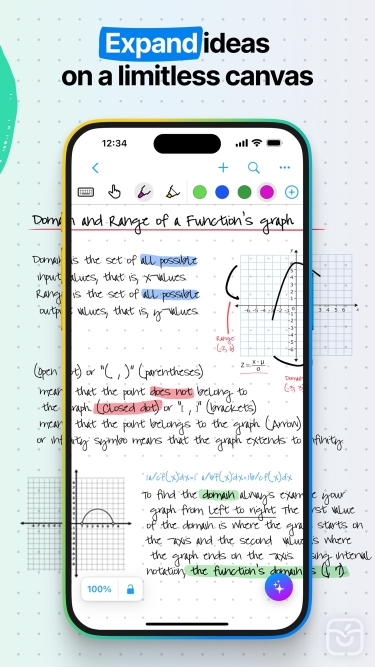 Expand ideas
on a limitless canvas
12:34
Domain and Range of a Function's graph
Domain is the set of all possible
input values, that is, x-values
Range is the set of all possible
output values, that is, y-values
Range
Domain
(Open dot) or "( , )" (parentheses)
mean that the point does not belong to
the graph (closed dot) or "[ , ]" (brackets)
mean that the point belongs to the graph (Arrow)
or infinity symbo means that the graph extends to infinity
To find the domain always examine your
graph from left to right The first value
of the domain is where the graph starts on
the -axis and the second values where
the graph ends on the -axis using interval
notation, the function's domain is
100%